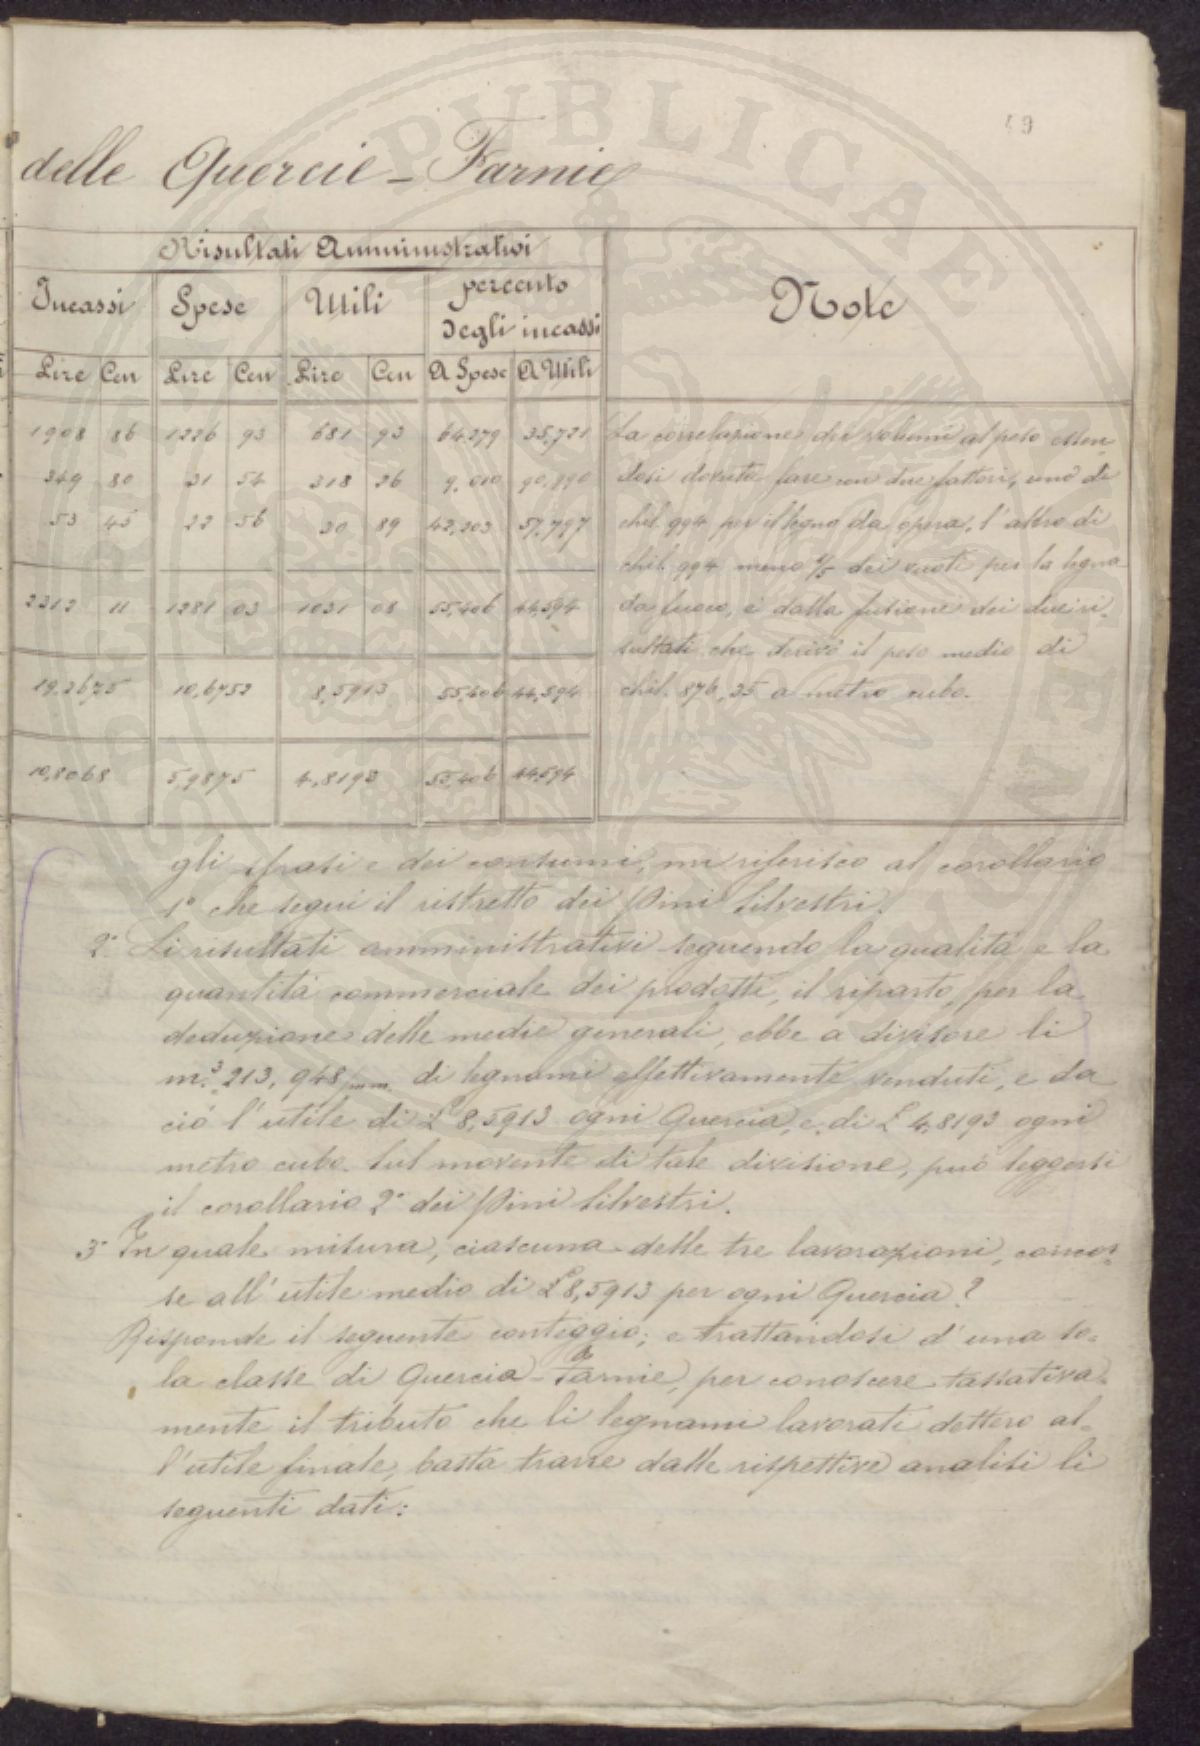 49
delle Quercie - Farnie
Risultati Amministrativi
Note
Incassi Spese Utili percento degli incassi
Lire Cen Lire Cen Lire Cen A Spese A Utili
1908 86 1226 93 681 93 64,279 35,721
349 80 31 54 318 26 9,010 90,990
53 45 22 56 30 89 42,203 57,797
2312 11 1281 03 1031 08 55,406 44,594
19,2675 10,6752 8,5913 55,406 44,594
10,8068 5,9875 4,8193 55,406 44,594
La correlazione dei volumi al peso essen
dosi dovuta fare con due fattori, uno di
chil. 994 per il legno da opera, l'altro di
chil. 994 meno 1/5 dei vuoti per la legna
da fuoco, è dalla fusione dei due ri-
sultati che derivò il peso medio di
chil. 876,35 a metro cubo.
gli sprati e dei consumi, mi riferisco al corollario
1° che seguì il ristretto dei Pini Silvestri.
2° Li risultati amministrativi seguendo la qualità e la
quantità commerciale dei prodotti, il riparto, per la
deduzione delle medie generali, ebbe a divisore li
m.³ 213,948 di legnami effettivamente venduti, e da
ciò l'utile di £ 8,5913 ogni Quercia, e di £ 4,8193 ogni
metro cubo. Sul movente di tale divisione, può leggersi
il corollario 2° dei Pini Silvestri.
3° In quale misura, ciascuna delle tre lavorazioni, concor-
se all'utile medio di £ 8,5913 per ogni Quercia?
Risponde il seguente conteggio; e trattandosi d'una so-
la classe di Quercia - Farnie, per conoscere tassativa-
mente il tributo che li legnami lavorati dettero al-
l'utile finale, basta trarre dalle rispettive analisi li
seguenti dati: